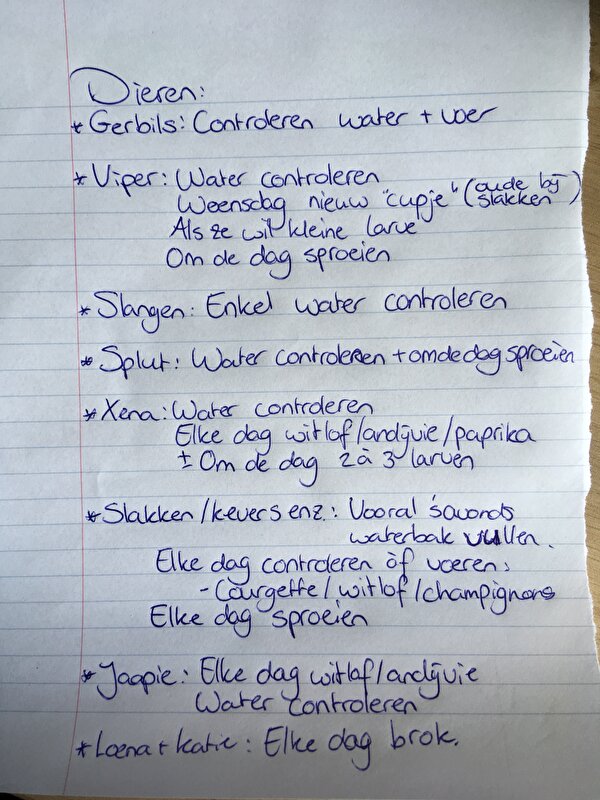 Dieren:
* Gerbils: Controleren water + voer
* Viper: Water controleren
Woensdag nieuw "cupje" (oude bij slakken)
Als ze wil kleine larve
Om de dag sproeien
* Slangen: Enkel water controleren
* Splut: Water controleren + om de dag sproeien
* Xena: Water controleren
Elke dag witlof/andijvie/paprika
± Om de dag 2 à 3 larven
* Slakken/kevers enz.: Vooral 's avonds
waterbak vullen.
Elke dag controleren òf voeren:
- Courgette/witlof/champignons
Elke dag sproeien
* Jaapie: Elke dag witlaf/andijvie
Water controleren
* Loena + Katie: Elke dag brok.